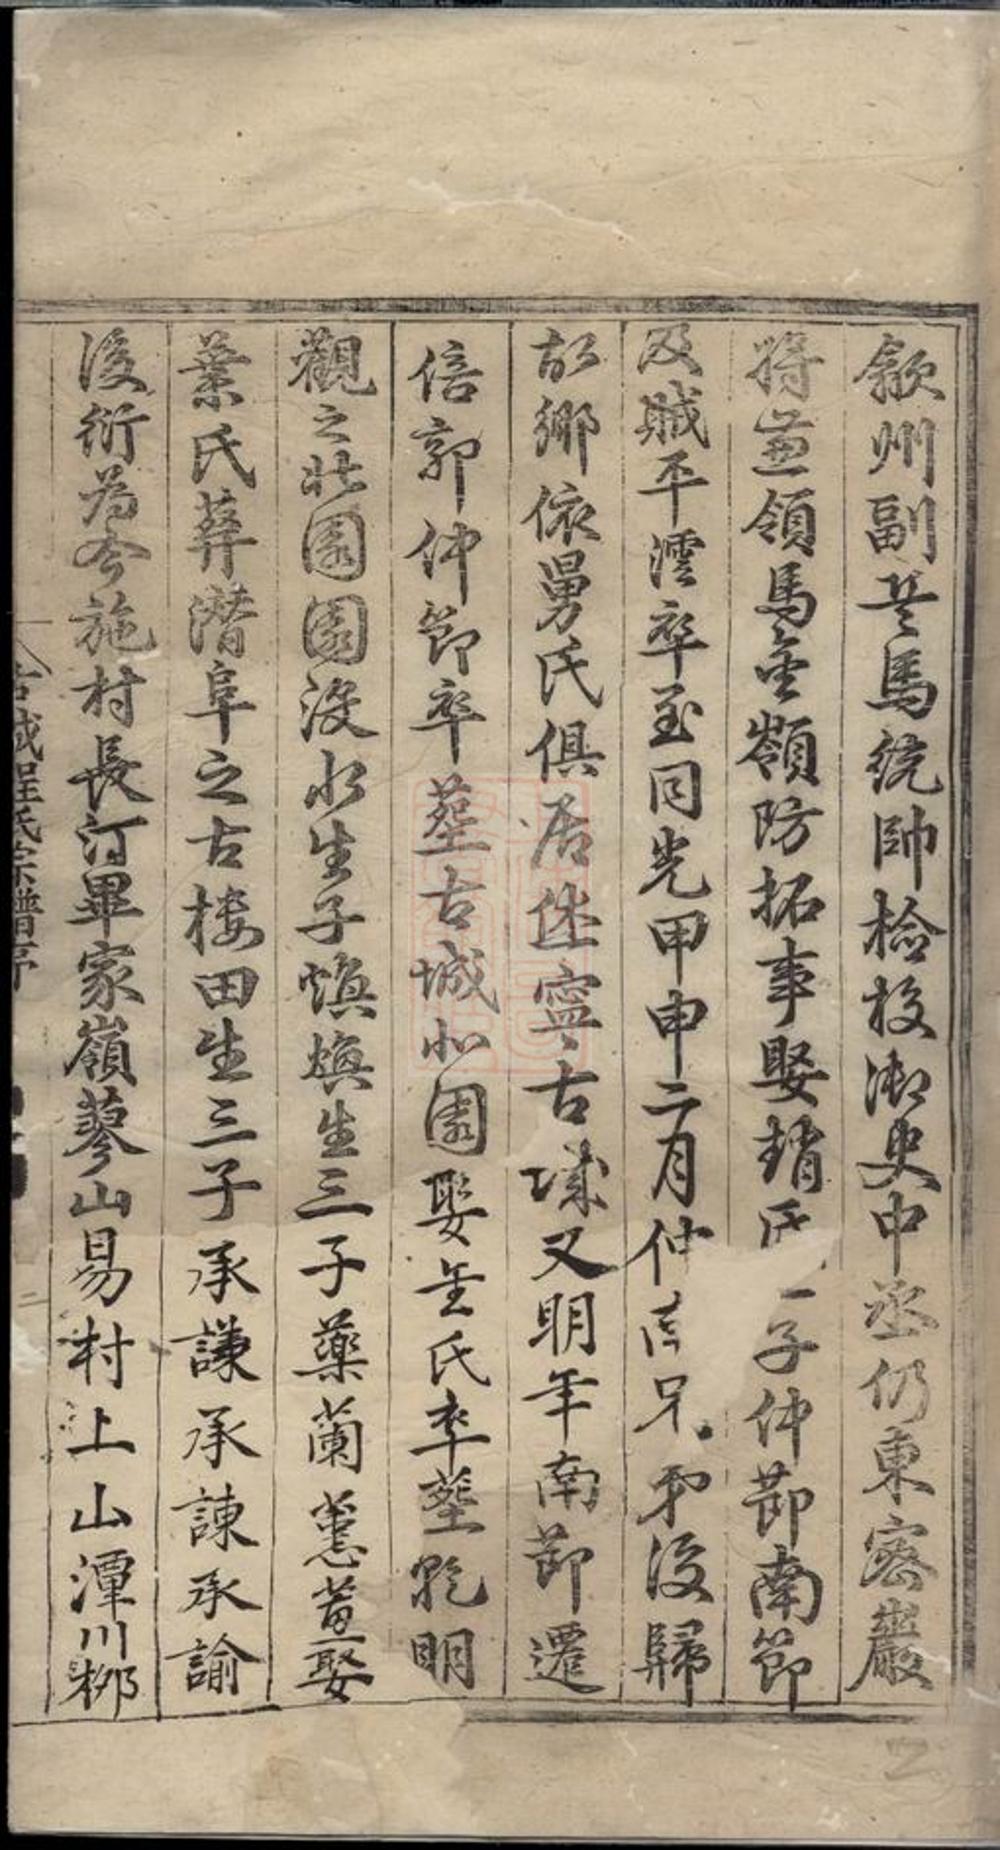 歙州副兵馬統帥檢校御史中丞仍東密巖
将兼領馬金嶺防拓事娶趙氏 子仲節南節
及賊平澐卒至同光甲申二月仲 兄弟後歸
故鄉依舅氏俱居休寧古城又明年南節遷
倍郭仲節卒塟古城北園娶金氏卒塟乾明
觀之北園園没水生子煥煥生三子藥蘭蕙薑娶
葉氏葬潛阜之古楼田生三子承謙承諫承諭
後衍為今施村長汀畢家嶺蓼山易村上山潭川栁
古城程氏宗譜序 二